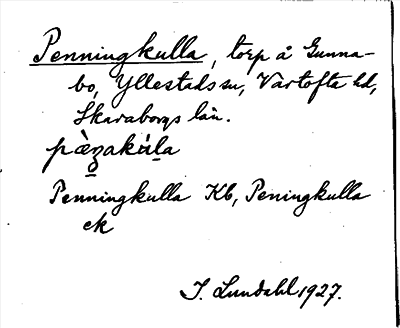 Penningkulla, torp å Gunna-
bo, Yllestads sn, Vartofta hd,
Skaraborgs län.
Penningkulla Kb, Peningkulla
ek
I. Lundahl 1927.